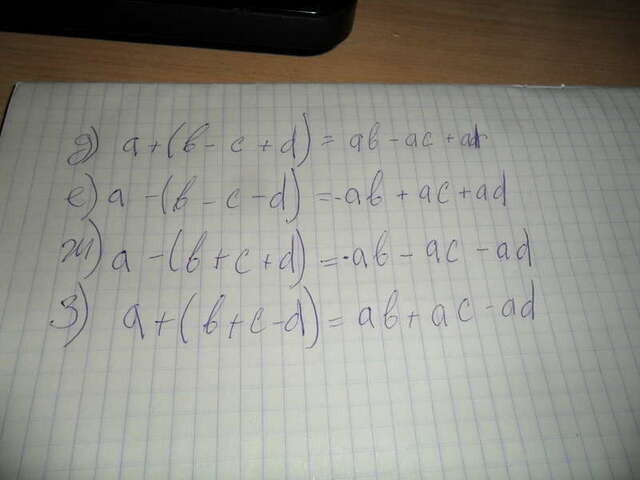 д) a + (b - c + d) = ab - ac + ad
е) a - (b - c - d) = -ab + ac + ad
ж) a - (b + c + d) = -ab - ac - ad
з) a + (b + c - d) = ab + ac - ad